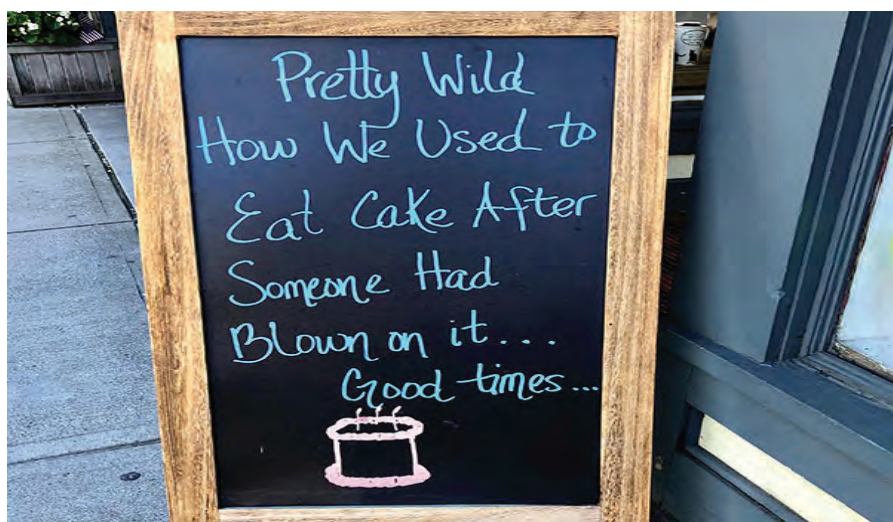 Pretty Wild
How We Used to
Eat Cake After
Someone Had
Blown on it...
Good times...